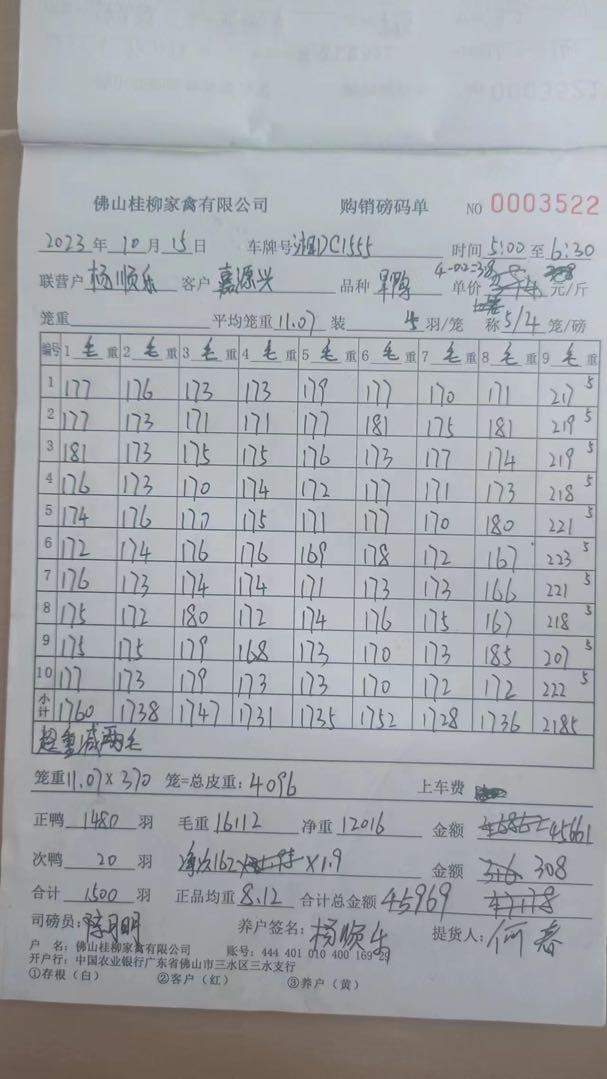 0003521
佛山桂柳家禽有限公司 购销磅码单 NO 0003522
2023 年 10 月 15 日 车牌号 湘DC1555 时间 5:00 至 6:30
联营户 杨顺乐 客户 嘉源兴 品种 单价 4-02=38 元/斤
笼重 平均笼重 11.07 装 4 羽/笼 称 5/4 笼/磅
编号 1 毛 重 2 毛 重 3 毛 重 4 毛 重 5 毛 重 6 毛 重 7 毛 重 8 毛 重 9 毛 重
1 177 176 173 173 179 177 170 171 217 5
2 177 173 171 171 177 181 175 181 219 5
3 181 173 175 175 176 173 177 174 219 5
4 176 173 170 174 172 177 171 173 218 5
5 174 176 170 175 171 177 170 180 221 5
6 172 174 176 176 169 178 172 167 223 5
7 176 173 174 174 171 173 173 166 221 5
8 175 172 180 172 174 176 175 167 218 5
9 175 175 179 168 173 170 173 185 207 5
10 177 173 179 173 173 170 172 172 222 5
小计 1760 1738 1747 1731 1735 1752 1728 1736 2185
超重减两毛
笼重 11.07 X 370 笼=总皮重: 4096 上车费
正鸭 1480 羽 毛重 16112 净重 12016 金额 45661
次鸭 20 羽 净次162 X1.9 金额 316 308
合计 1500 羽 正品均重 8.12 合计总金额 45969
司磅员: 养户签名: 杨顺乐 提货人: 何春
户 名:佛山桂柳家禽有限公司 账号: 444 401 010 400 169 29
开户行:中国农业银行广东省佛山市三水区三水支行
①存根(白) ②客户(红) ③养户(黄)